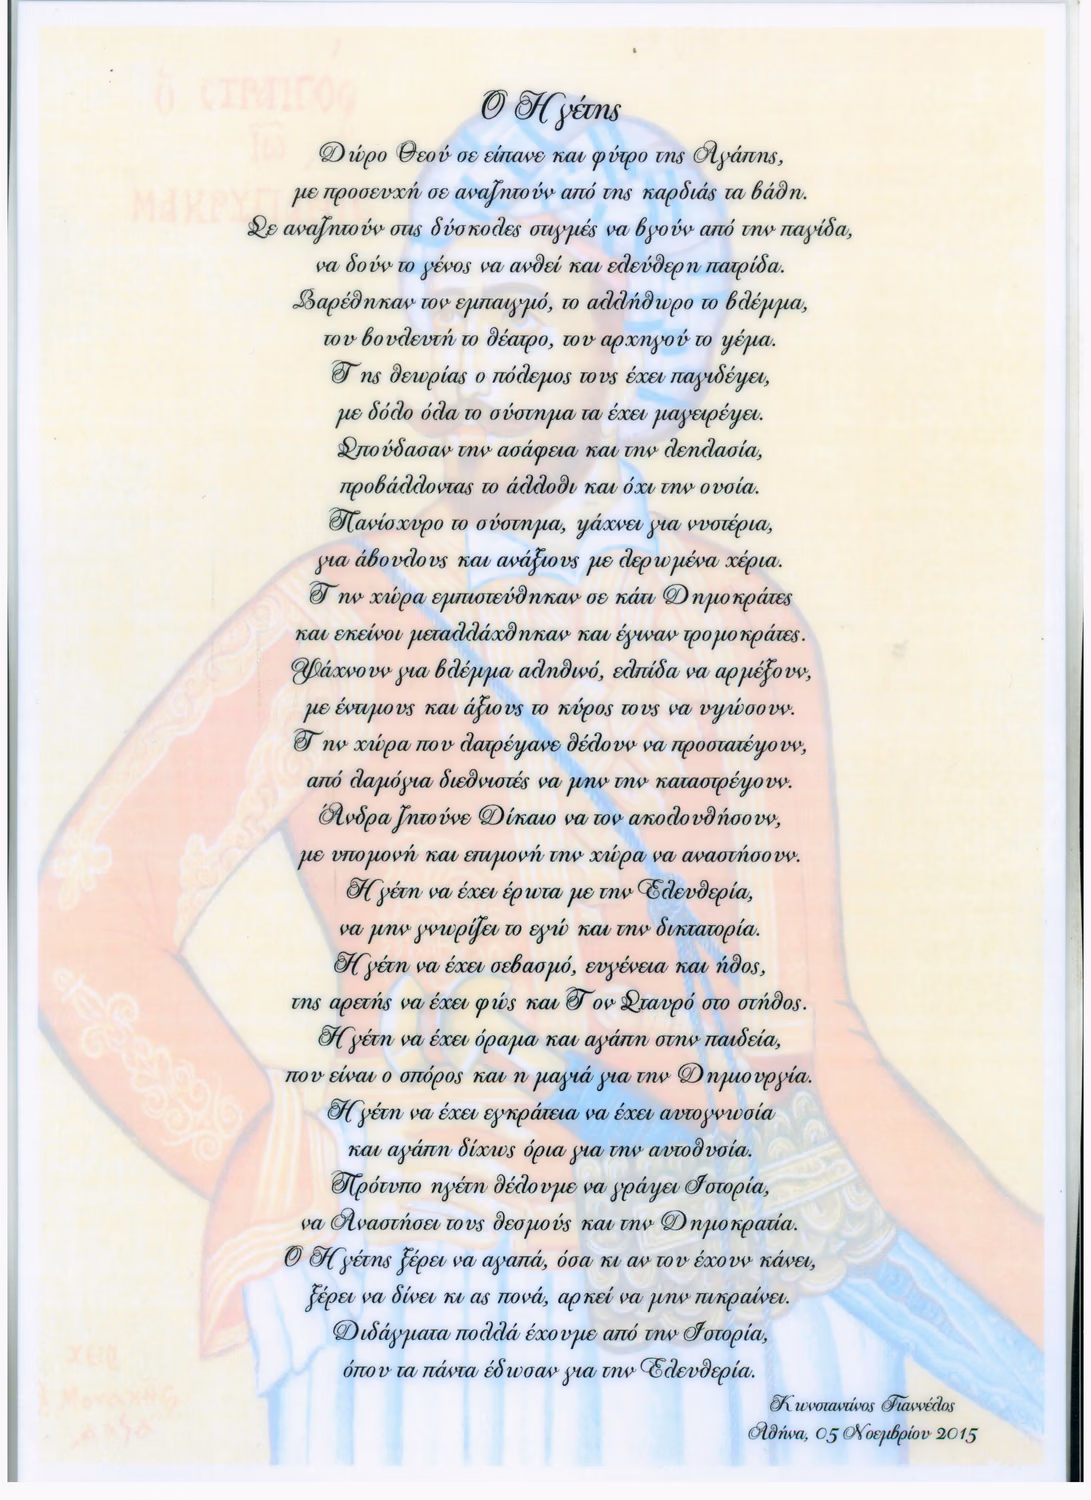 Ο ΣΤΡΑΤΗΓΟς
Ο Ηγέτης
Δώρο Θεού σε είπανε και φύτρο της Αγάπης,
με προσευχή σε αναζητούν από της καρδιάς τα βάθη.
Σε αναζητούν στις δύσκολες στιγμές να βγούν από την παγίδα,
να δούν το γένος να ανθεί και ελεύθερη πατρίδα.
Βαρέθηκαν τον εμπαιγμό, το αλλήθωρο το βλέμμα,
του βουλευτή το θέατρο, του αρχηγού το ψέμα.
Της θεωρίας ο πόλεμος τους έχει παγιδέψει,
με δόλο όλα το σύστημα τα έχει μαγειρέψει.
Σπούδασαν την ασάφεια και την λεηλασία,
προβάλλοντας το άλλοθι και όχι την ουσία.
Πανίσχυρο το σύστημα, ψάχνει για νυστέρια,
για άβουλους και ανάξιους με λερωμένα χέρια.
Την χώρα εμπιστεύθηκαν σε κάτι Δημοκράτες
και εκείνοι μεταλλάχθηκαν και έγιναν τρομοκράτες.
Ψάχνουν για βλέμμα αληθινό, ελπίδα να αρμέξουν,
με έντιμους και άξιους το κύρος τους να υψώσουν.
Την χώρα που λατρέψανε θέλουν να προστατέψουν,
από λαμόγια διεθνιστές να μην την καταστρέψουν.
Άνδρα ζητούνε Δίκαιο να τον ακολουθήσουν,
με υπομονή και επιμονή την χώρα να αναστήσουν.
Ηγέτη να έχει έρωτα με την Ελευθερία,
να μην γνωρίζει το εγώ και την δικτατορία.
Ηγέτη να έχει σεβασμό, ευγένεια και ήθος,
της αρετής να έχει φώς και Τον Σταυρό στο στήθος.
Ηγέτη να έχει όραμα και αγάπη στην παιδεία,
που είναι ο σπόρος και η μαγιά για την Δημιουργία.
Ηγέτη να έχει εγκράτεια να έχει αυτογνωσία
και αγάπη δίχως όρια για την αυτοθυσία.
Πρότυπο ηγέτη θέλουμε να γράψει Ιστορία,
να Αναστήσει τους θεσμούς και την Δημοκρατία.
Ο Ηγέτης ξέρει να αγαπά, όσα κι αν του έχουν κάνει,
ξέρει να δίνει κι ας πονά, αρκεί να μην πικραίνει.
Διδάγματα πολλά έχουμε από την Ιστορία,
όπου τα πάντα έδωσαν για την Ελευθερία.
Κωνσταντίνος Γιαννέλος
Αθήνα, 05 Νοεμβρίου 2015
ΧΕΙΡ